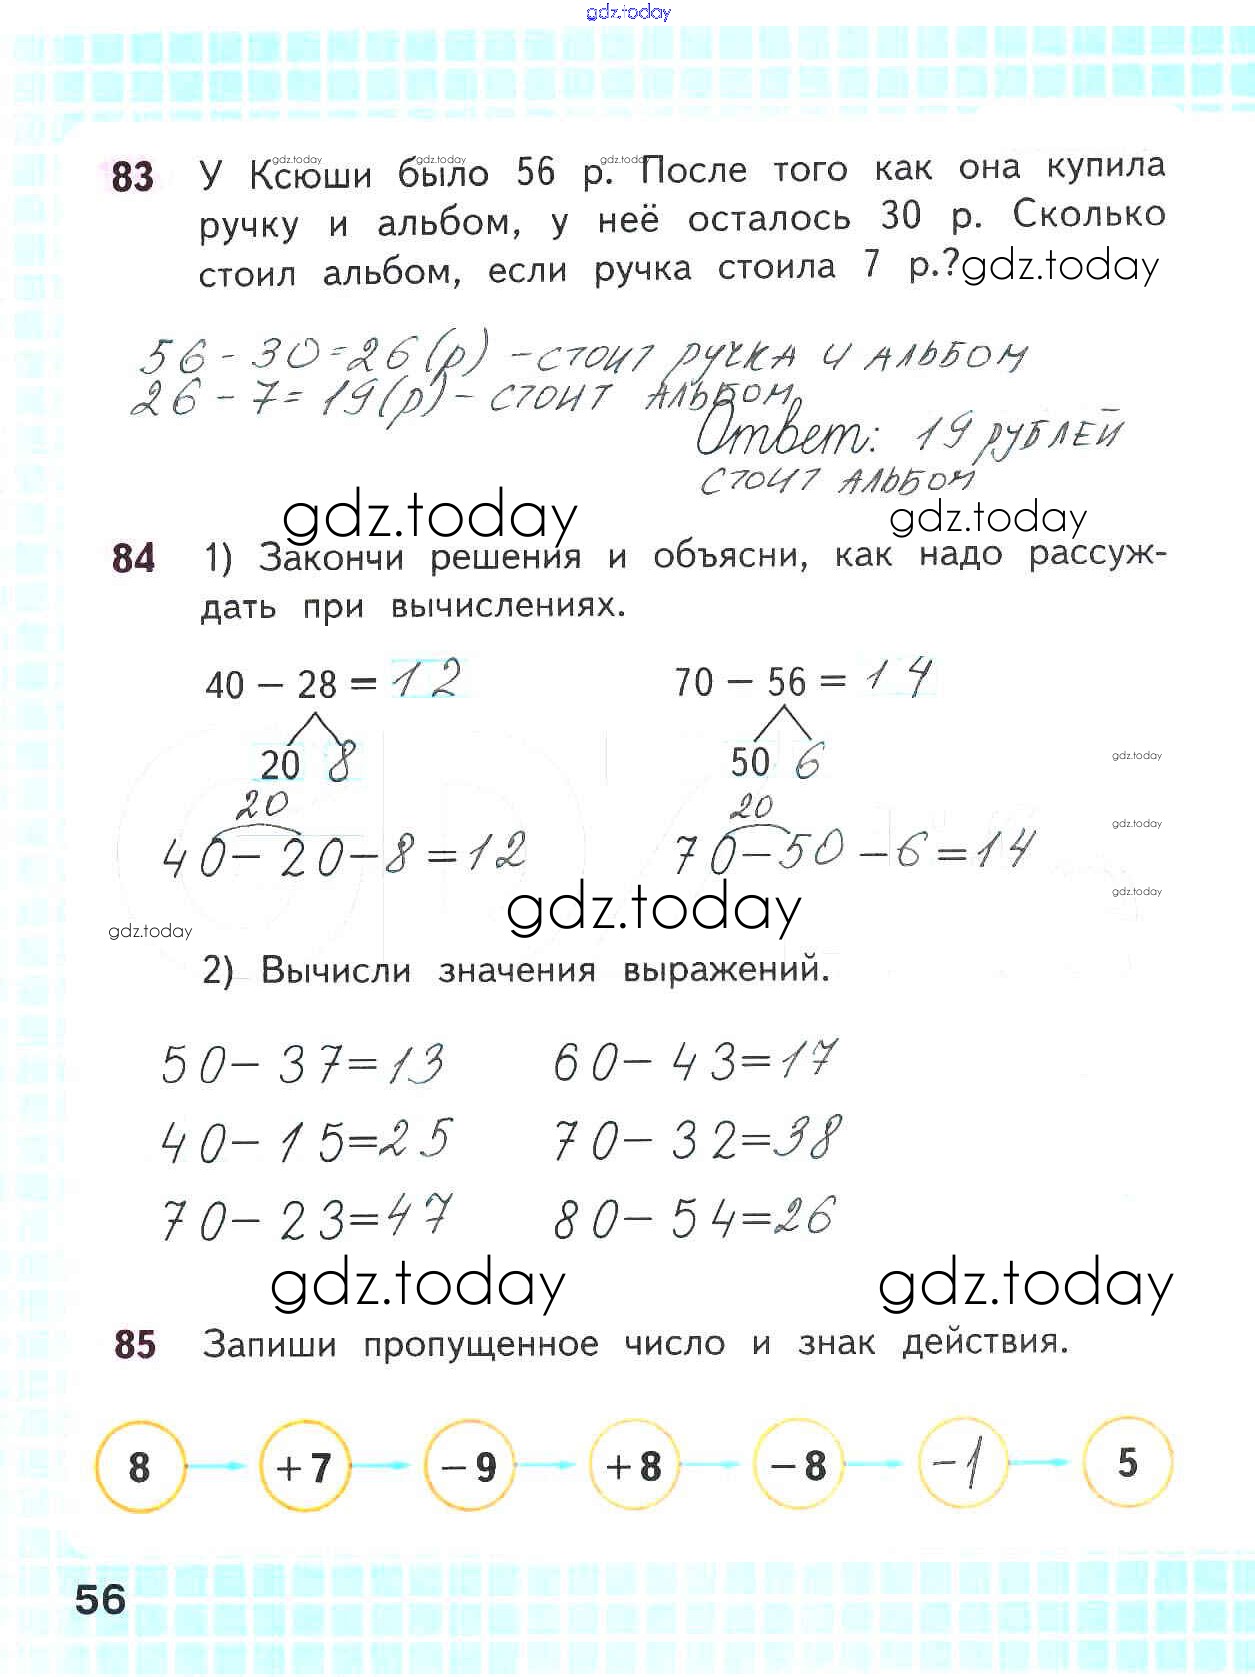 gdz.today
83 У Ксюши было 56 р. После того как она купила
gdz.today gdz.today gdz.today
ручку и альбом, у неё осталось 30 р. Сколько
стоил альбом, если ручка стоила 7 р.? gdz.today
56 - 30 = 26 (р) - стоит ручка и альбом
26 - 7 = 19 (р) - стоит альбом
Ответ: 19 рублей
стоит альбом
gdz.today gdz.today
84 1) Закончи решения и объясни, как надо рассуж-
дать при вычислениях.
40 − 28 = 12 70 − 56 = 14
20 8 50 6
gdz.today
20 20
gdz.today
40 - 20 - 8 = 12 70 - 50 - 6 = 14
gdz.today
gdz.today
gdz.today
2) Вычисли значения выражений.
50 - 37 = 13 60 - 43 = 17
40 - 15 = 25 70 - 32 = 38
70 - 23 = 47 80 - 54 = 26
gdz.today gdz.today
85 Запиши пропущенное число и знак действия.
8 + 7 − 9 + 8 − 8 - 1 5
56